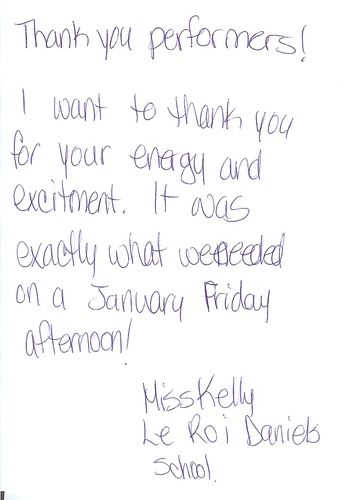 Thank you performers!
I want to thank you
for your energy and
excitment. It was
exactly what we needed
on a January Friday
afternoon!
Miss Kelly
Le Roi Daniels
School.